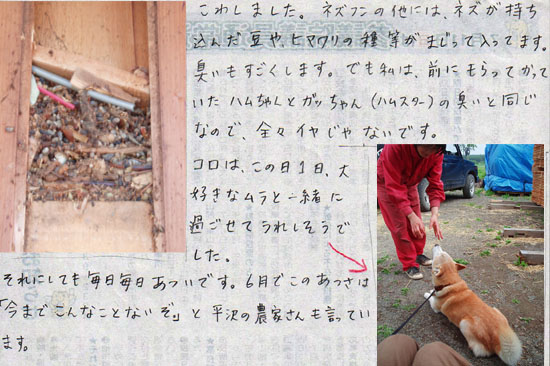 こわしました。ネズフンの他には、ネズが持ち
込んだ豆や、ヒマワリの種等がまじって入ってます。
臭いもすごくします。でも私は、前にもらってかって
いたハムちゃんとガッちゃん(ハムスター)の臭いと同じ
なので、全々イヤじゃないです。
コロは、この日1日、大
好きなムラと一緒に
過ごせてうれしそうで
した。
それにしても毎日毎日あついです。6月でこのあつさは
「今までこんなことないぞ」と平沢の農家さんも言ってい
ます。